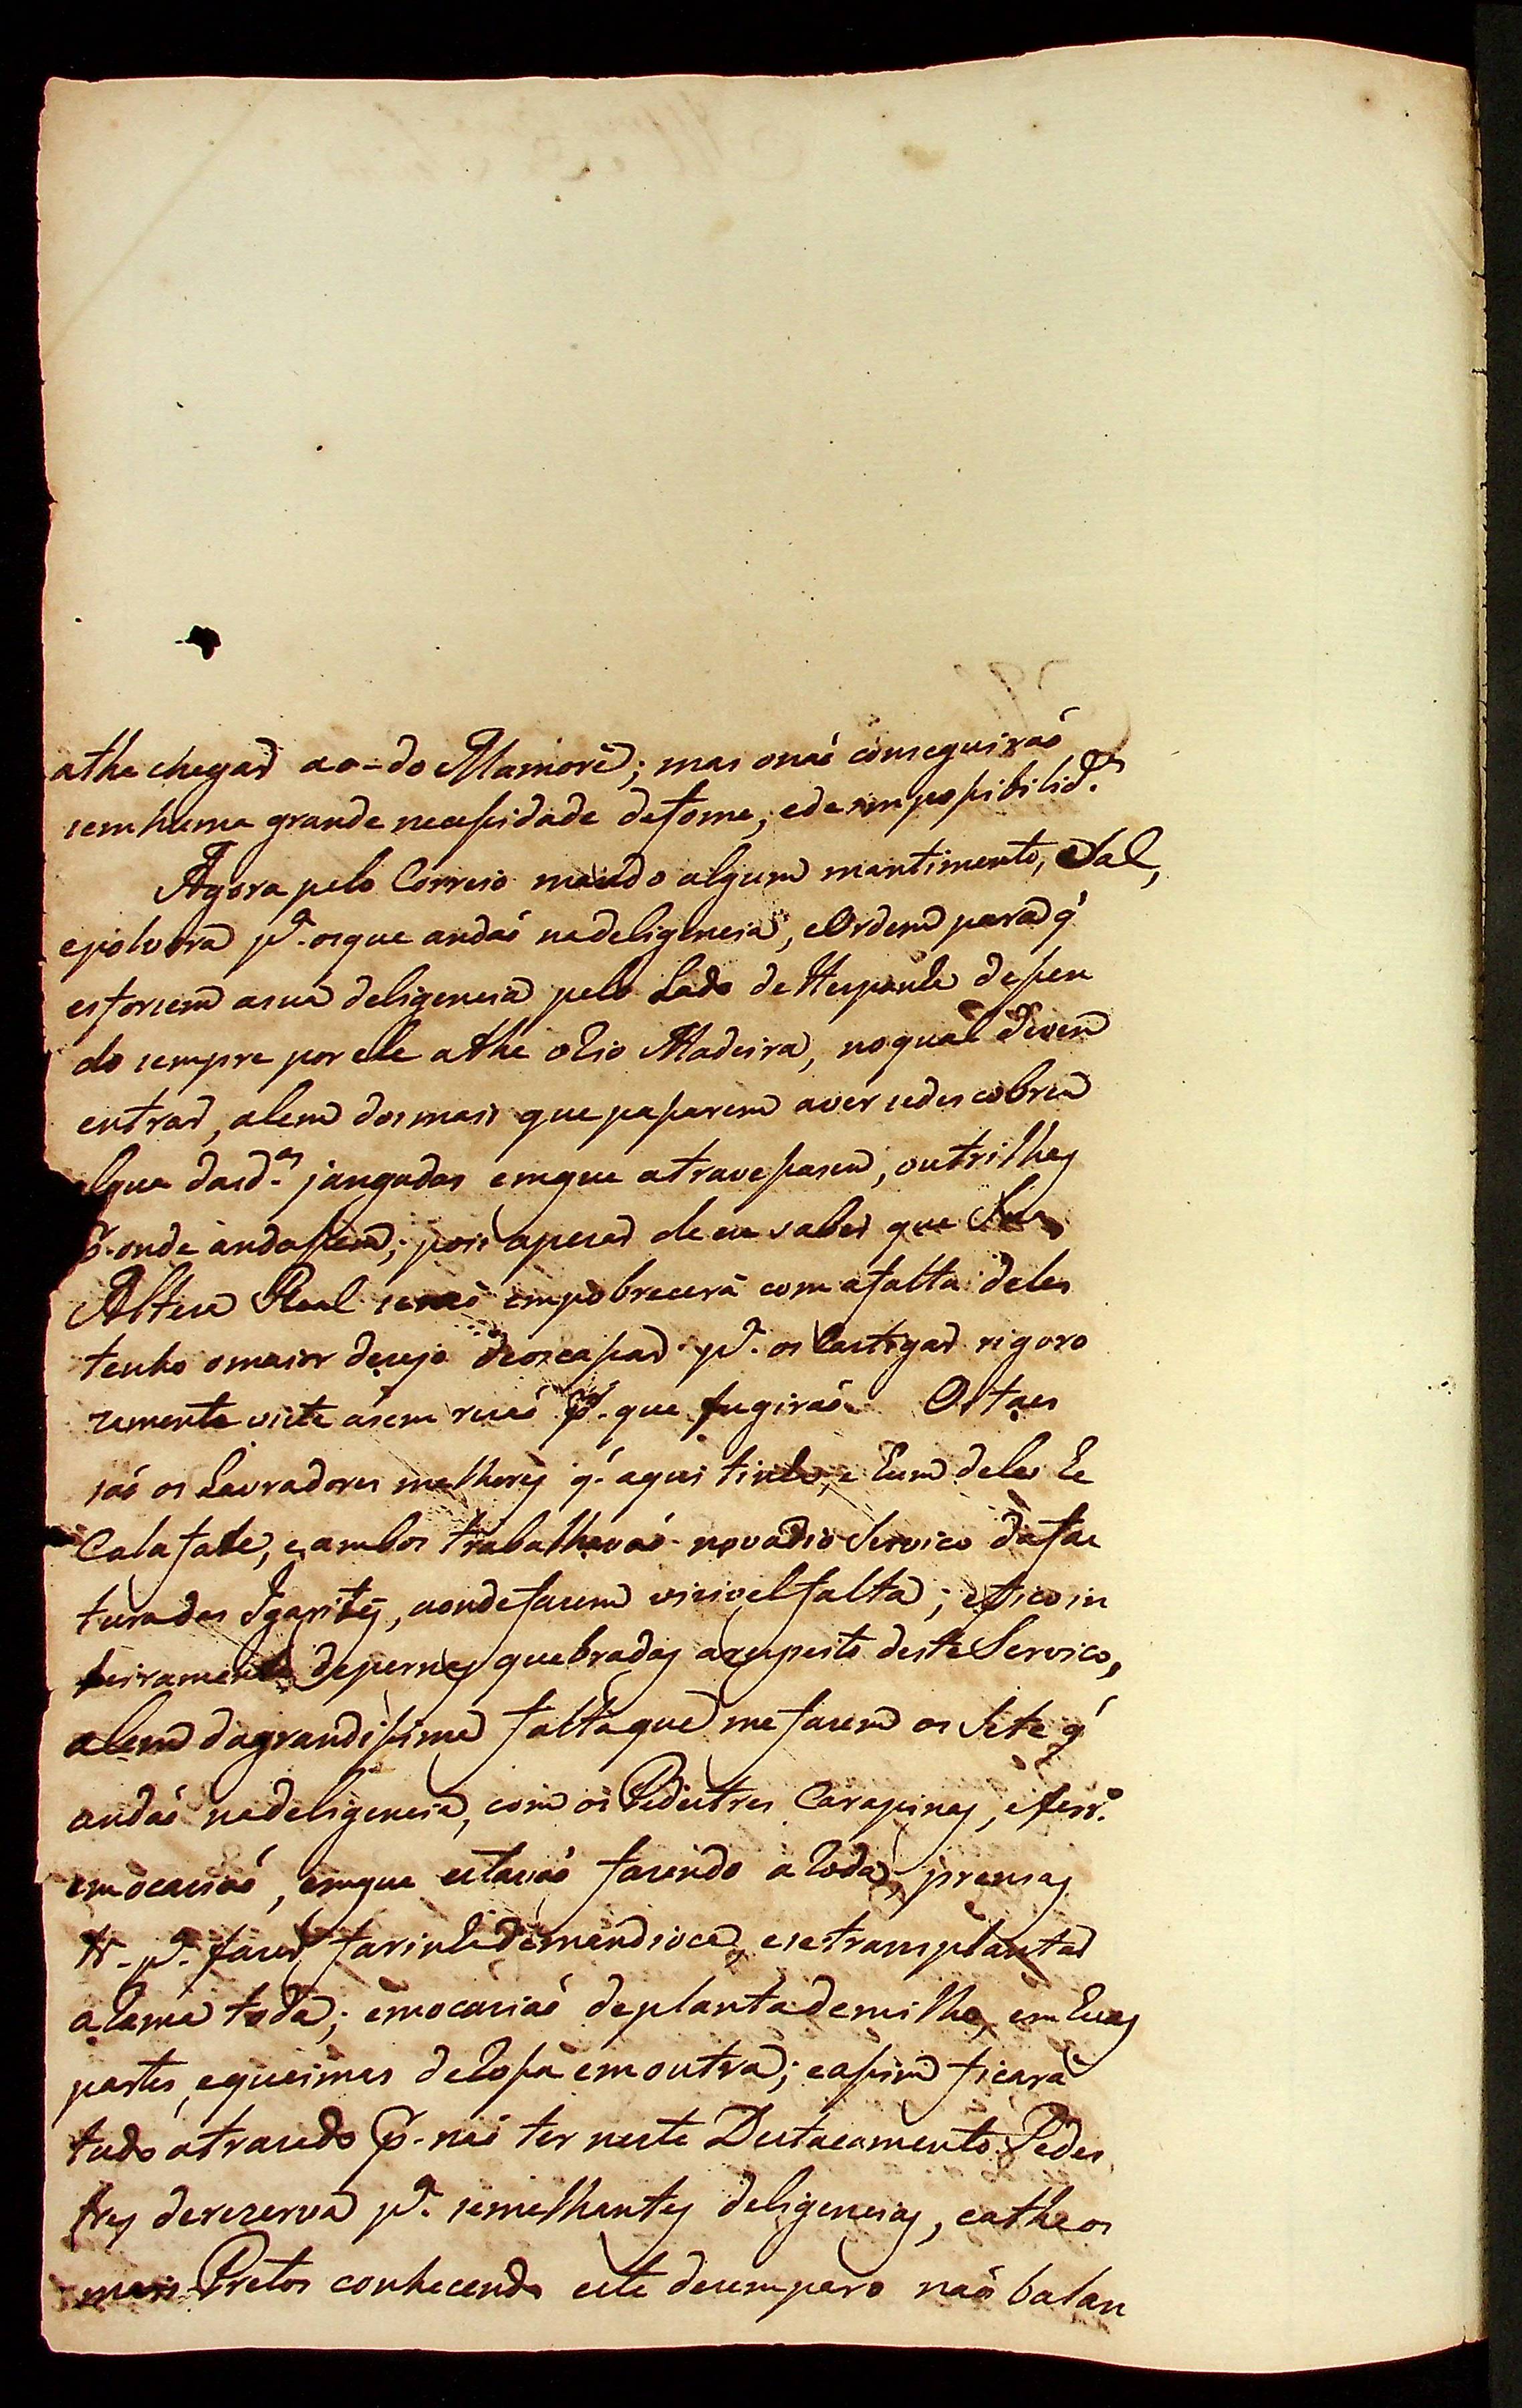 athe chegar ao do Mamoré; mas onaó conseguiraó
sem huma grande necessidade defome, ede impossibilid.es
Agora pelo Correio mando algum mantimento, Sal,
epolvora p.a osque andaó nadeligencia, eOrdem para q'
esforsem asua deligencia pelo Lado de Hespanha desen
do sempre por ele athe oRio Madeira, noqual devem
entrar, alem dosmais que pasarem aver sedescobrem
algua dasd.as jangadas emque atravesasem, outrilhos
p.r onde andasem; pois apesar de eu saber que Sua
Alteza Real senaó empobrecerá com afalta deles
tenho omaior dezejo deoscasar p.a os Castigar rigoro
zamente visto asem rezaó p.r que fugiraó. Ostaes
saó os Lavradores melhores q' aqui tinha, e hum deles he
Calafate, e ambos trabalhavaó novadio Servico dafac
turadas Igarités, aondefazem vizivelfalta; efico in
teiramente depernas quebradas arespeito deste Servico,
alem dagrandisima faltaque mefazem os Sete q'
andaó nadeligencia, com os Pedestres Carapinas, eferr.o
emocasiaó, emque estavaó fazendo aRoda, prensas
&.a p.a fazer farinhademandioca, esetransplantar
aCama toda; emocasiaó deplantademilho, em huas
partes, equeimas deRosa emoutra; easim ficará
tudo atrazado p.r naó ter neste Destacamento Pedes
tres derezerva p.a semelhantes deligencias, eatheos
mais Pretos conhecendo este dezemparo naó balan